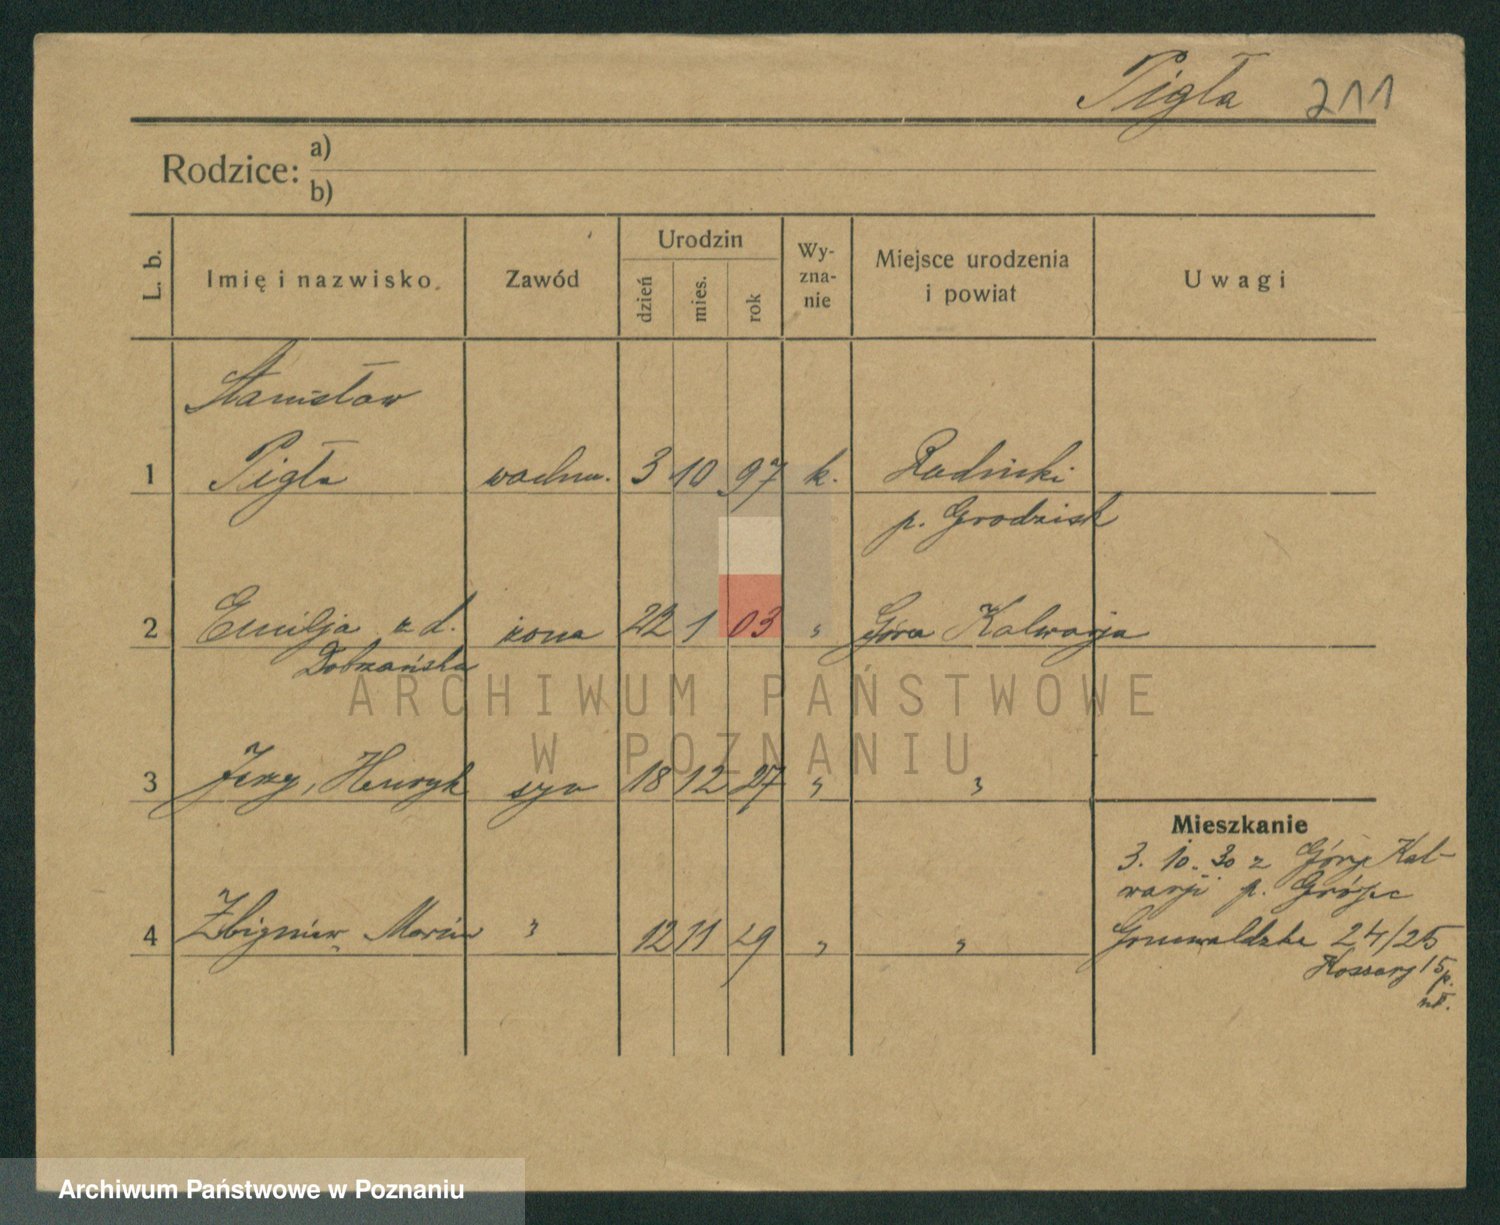 Pigła 211
Rodzice: a)
b)
L. b.
Imię i nazwisko.
Zawód
Urodzin
dzień
mies.
rok
Wy-
zna-
nie
Miejsce urodzenia
i powiat
Uwagi
Stanisław
1 Pigła wachm. 3 10 97 k.
p. Grodzisk
2 Emilja z d. żona 22 1 03 " Góra Kalwarja
Dobrzańska
3 Jerzy, Henryk syn 18 12 27 " "
Mieszkanie
3. 10. 30 z Góry Kal-
warji p. Grójec
4 Zbigniew Marian " 12 11 29 " "
Grunwaldzka 24/25
15
ARCHIWUM PAŃSTWOWE
W POZNANIU
Archiwum Państwowe w Poznaniu